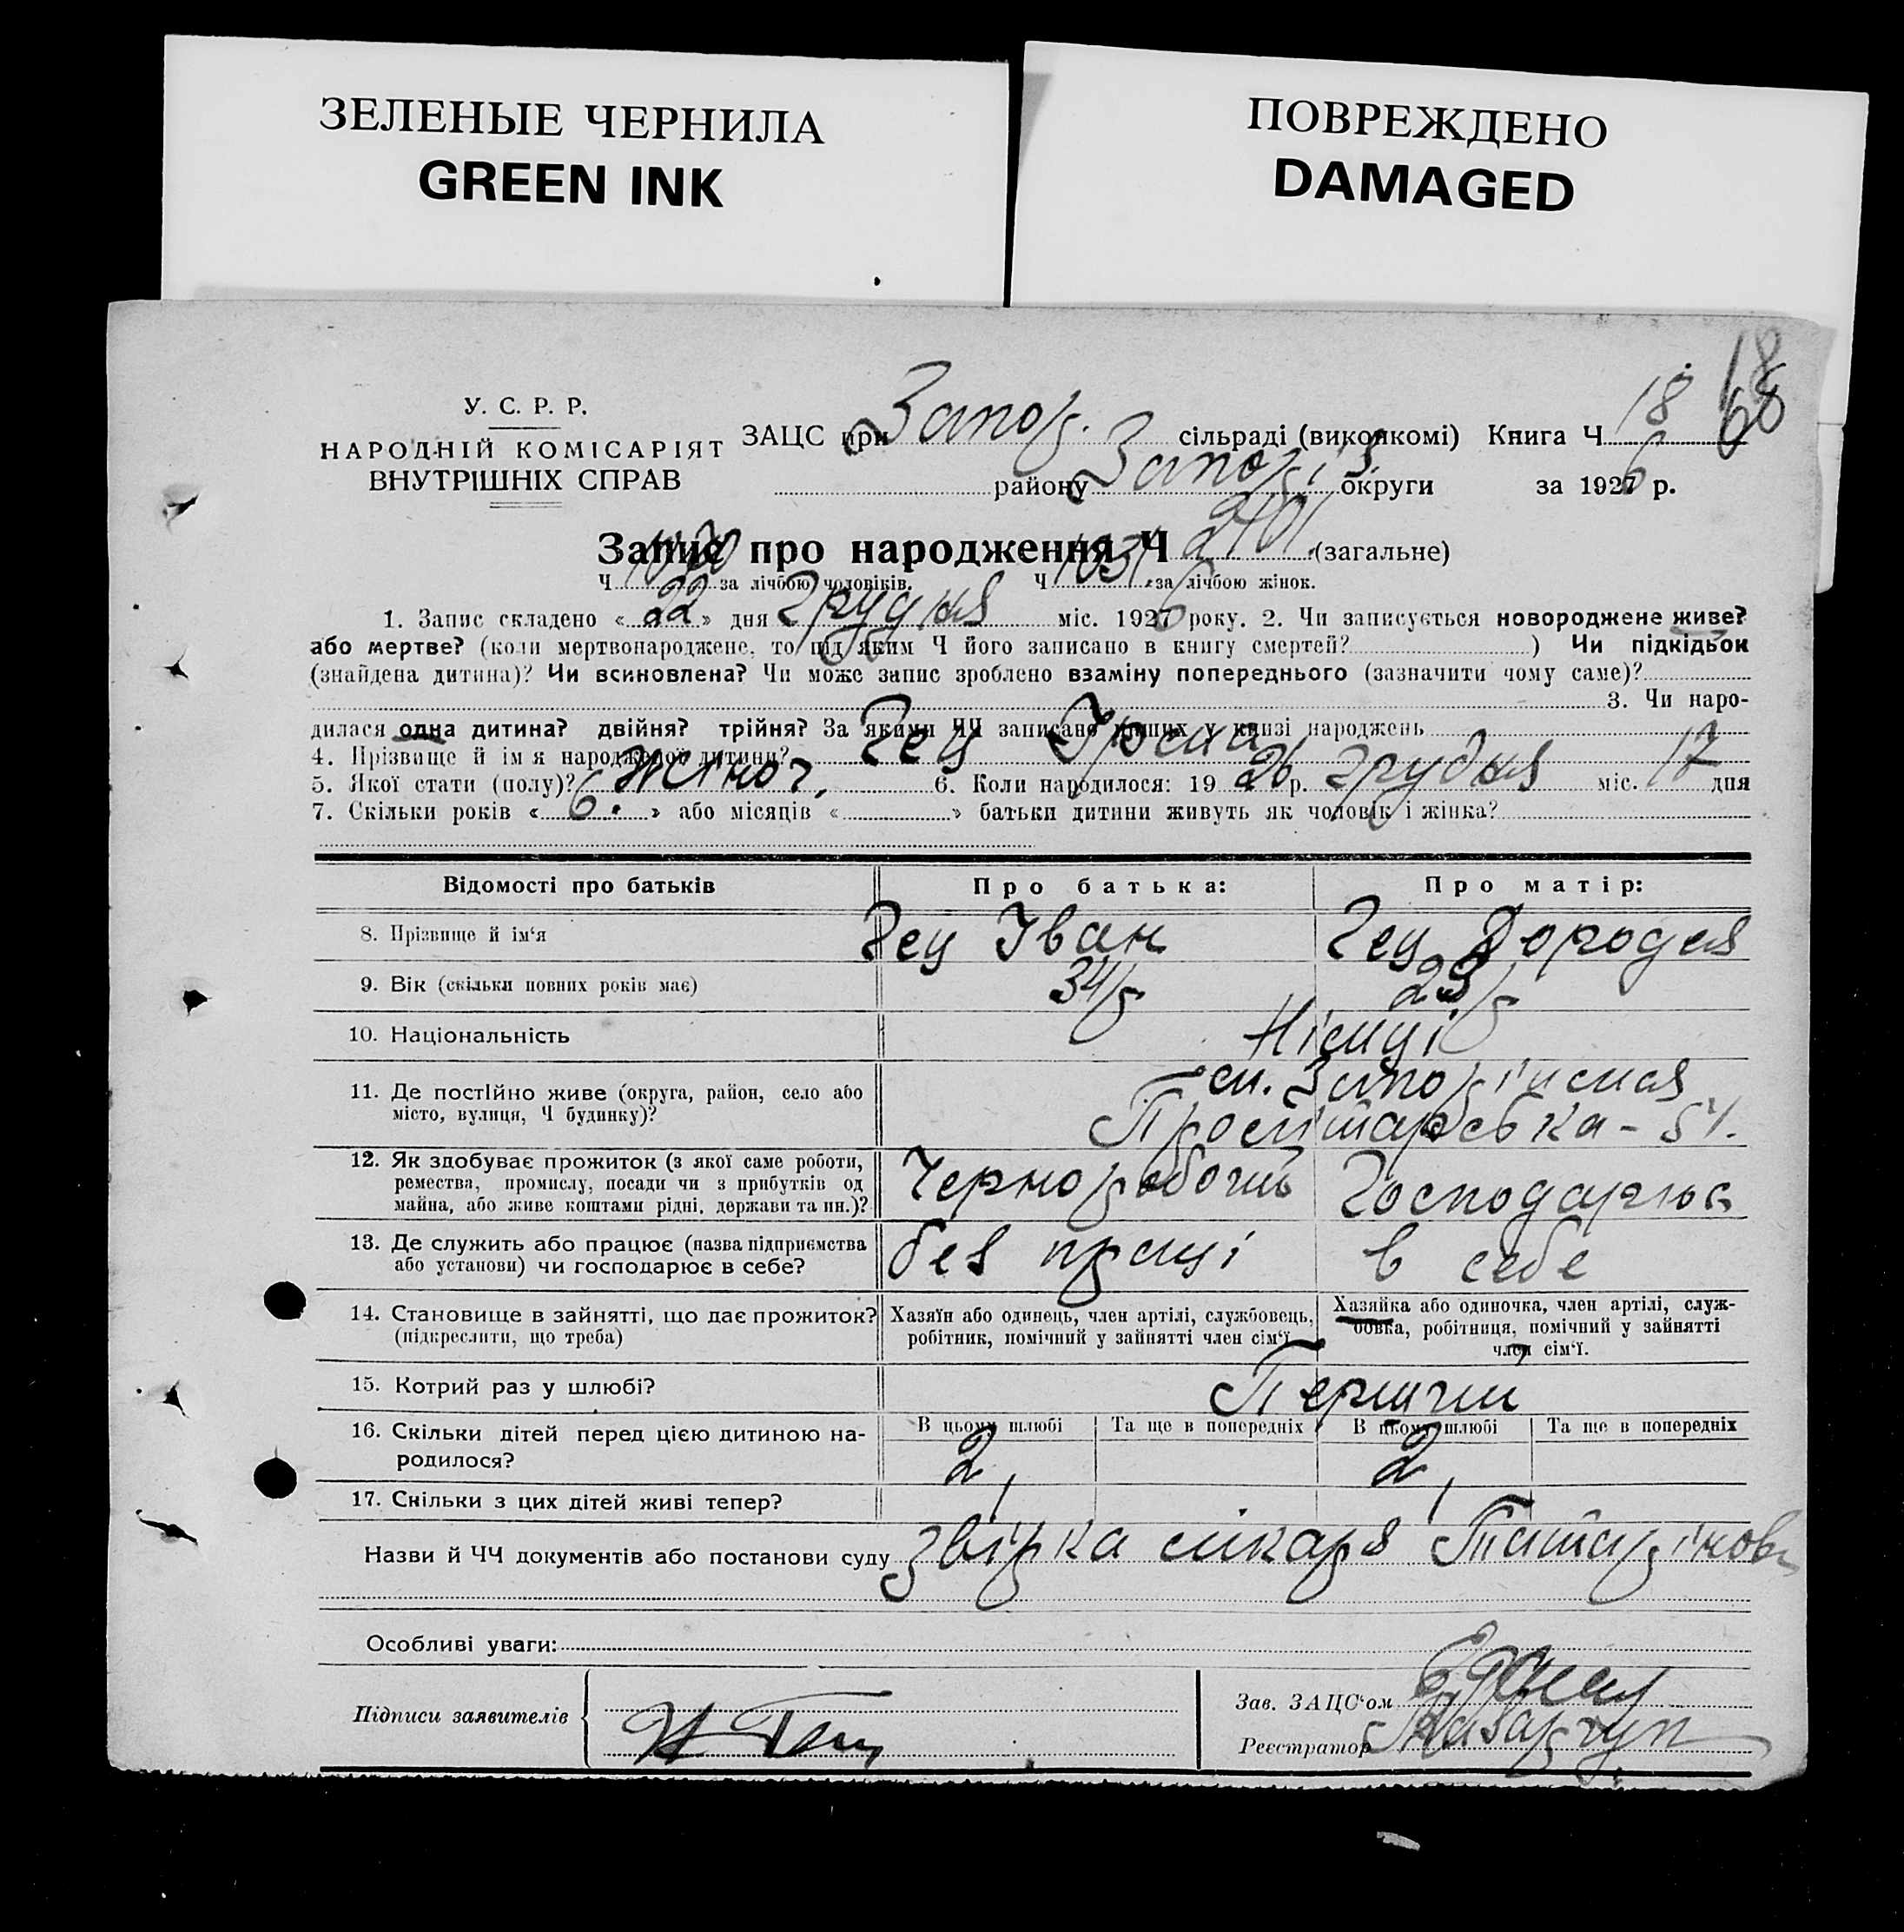 ЗЕЛЕНЫЕ ЧЕРНИЛА
GREEN INK
ПОВРЕЖДЕНО
DAMAGED
18
18
68
У. С. Р. Р.
НАРОДНІЙ КОМІСАРІЯТ
ВНУТРІШНІХ СПРАВ
ЗАЦС при Запор. сільраді (виконкомі) Книга Ч
району Запоріз. округи за 1926 р.
Запис про народження Ч 2101 (загальне)
Ч 1070 за лічбою чоловіків. Ч 1031 за лічбою жінок.
1. Запис складено « 22 » дня Грудня міс. 1926 року. 2. Чи записується новороджене живе?
або мертве? (коли мертвонароджене, то під яким Ч його записано в книгу смертей? ) Чи підкідьок
(знайдена дитина)? Чи всиновлена? Чи може запис зроблено взаміну попереднього (зазначити чому саме)?
3. Чи наро-
дилася одна дитина? двійня? трійня? За якими ЧЧ записано инших у книзі народжень
4. Прізвище й ім'я народженої дитини? Гец
5. Якої статі (полу)? Жіноч. 6. Коли народилося: 1926 р. Грудня міс. 17 дня
7. Скільки років « 6. » або місяців « » батьки дитини живуть як чоловік і жінка?
Відомості про батьків
Про батька:
Про матір:
8. Прізвище й ім'я Гец Іван Гец Дородея
9. Вік (скільки повних років має) 34/р 29/р
10. Національність Німці
11. Де постійно живе (округа, район, село або
місто, вулиця, Ч будинку)?
м. Запоріжжя
Пролітарська - 54.
12. Як здобуває прожиток (з якої саме роботи,
ремества, промислу, посади чи з прибутків од
майна, або живе коштами рідні, держави та ин.)?
Чернорабочий Господарює
13. Де служить або працює (назва підприємства
або установи) чи господарює в себе?
без праці в себе
14. Становище в зайнятті, що дає прожиток?
(підкреслити, що треба)
Хазяїн або одинець, член артілі, службовець,
робітник, помічний у зайнятті член сім'ї.
Хазяйка або одиночка, член артілі, служ-
бовка, робітниця, помічний у зайнятті
член сім'ї.
15. Котрий раз у шлюбі? Перший
16. Скільки дітей перед цією дитиною на-
родилося?
В цьому шлюбі Та ще в попередніх В цьому шлюбі Та ще в попередніх
2, 2,
17. Скільки з цих дітей живі тепер?
Назви й ЧЧ документів або постанови суду звірка лікаря
Особливі уваги:
Підписи заявителів
Зав. ЗАЦС'ом
Реєстратор